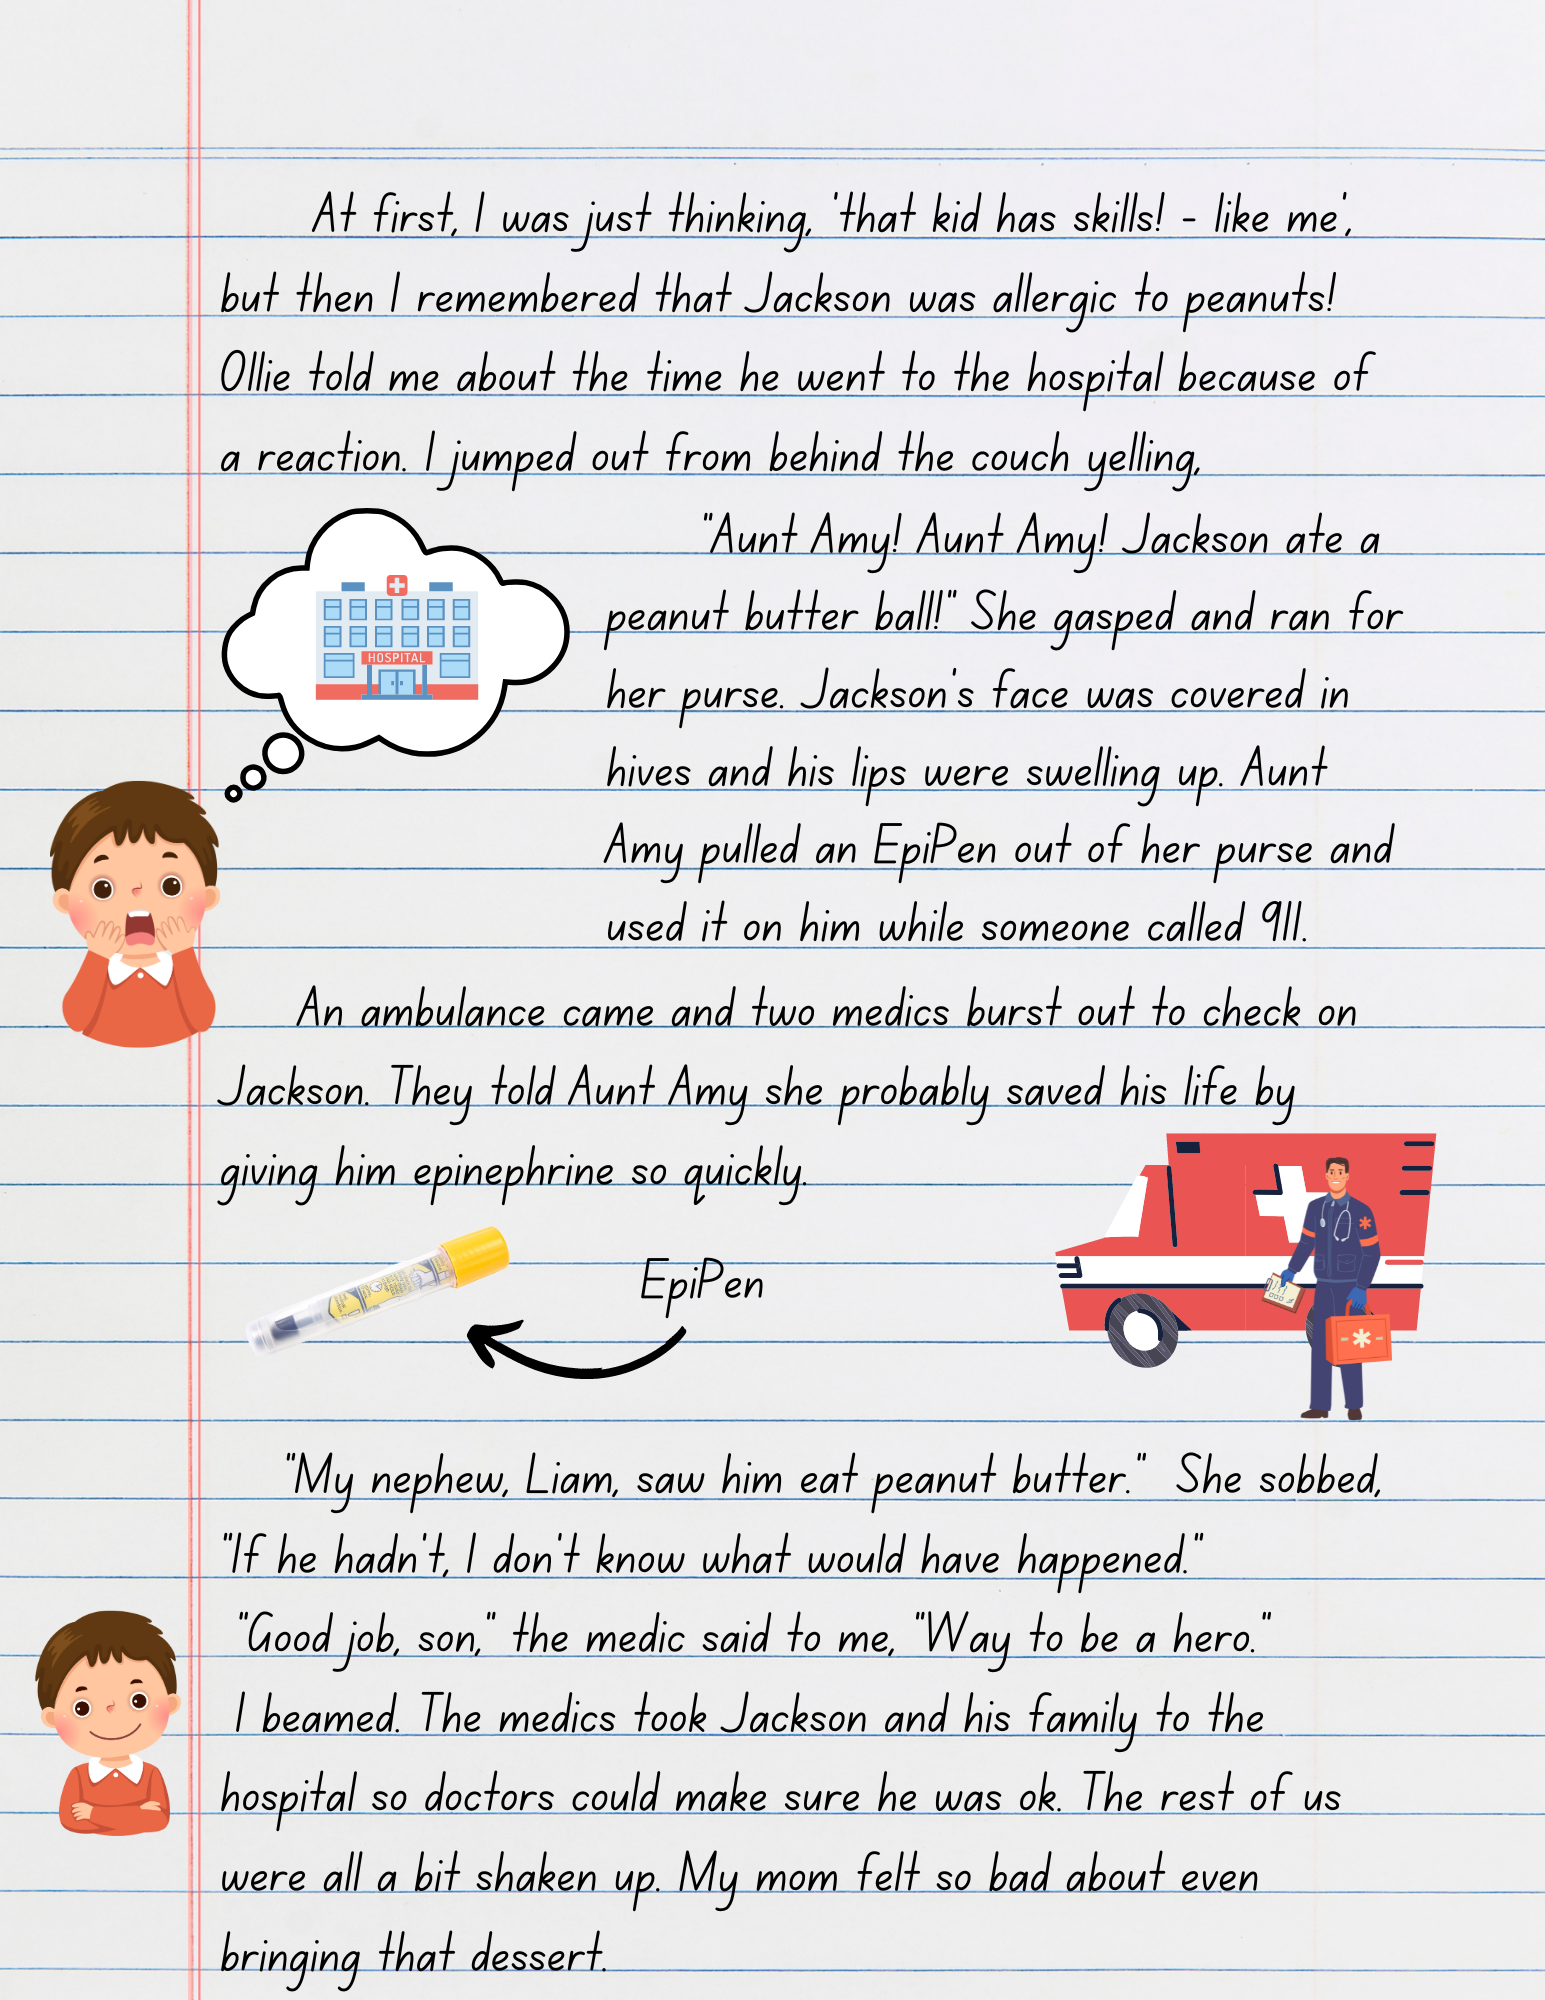 At first, I was just thinking, 'that kid has skills! - like me',
but then I remembered that Jackson was allergic to peanuts!
Ollie told me about the time he went to the hospital because of
a reaction. I jumped out from behind the couch yelling,
"Aunt Amy! Aunt Amy! Jackson ate a
peanut butter ball!" She gasped and ran for
her purse. Jackson's face was covered in
hives and his lips were swelling up. Aunt
Amy pulled an EpiPen out of her purse and
used it on him while someone called 911.
HOSPITAL
An ambulance came and two medics burst out to check on
Jackson. They told Aunt Amy she probably saved his life by
giving him epinephrine so quickly.
EpiPen
"My nephew, Liam, saw him eat peanut butter." She sobbed,
"If he hadn't, I don't know what would have happened."
"Good job, son," the medic said to me, "Way to be a hero."
I beamed. The medics took Jackson and his family to the
hospital so doctors could make sure he was ok. The rest of us
were all a bit shaken up. My mom felt so bad about even
bringing that dessert.